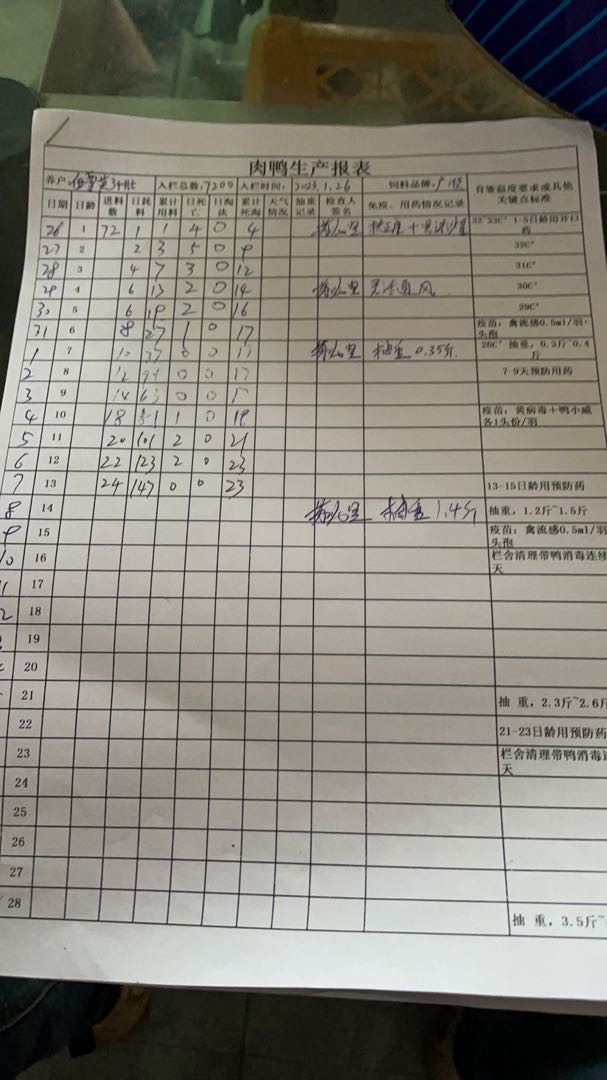 肉鸭生产报表
养户: 入栏总数:7200 入栏时间: 2023.1.26 饲料品牌: 有够温度要求或其他关键点标准
日期 日龄 进料数 日耗料 累计用料 日死亡 日淘汰 累计死淘 天气情况 抽重记录 检查人签名 免疫、用药情况记录
26 1 72 1 1 4 0 4 32~33C° 1-5日龄用开口药
27 2 2 3 5 0 9 32C°
28 3 4 7 3 0 12 31C°
29 4 6 13 2 0 14 通风 30C°
30 5 6 19 2 0 16 29C°
31 6 8 27 1 0 17 疫苗:禽流感0.5ml/羽·头孢
1 7 10 37 0 0 17 抽重 0.35斤 28C° 抽重,0.3斤~0.4斤
2 8 12 0 0 17 7-9天预防用药
3 9 14 63 0 0
4 10 18 81 1 0 18 疫苗:黄病毒+鸭小威各1头份/羽
5 11 20 101 2 0 21
6 12 22 123 2 0 23
7 13 24 147 0 0 23 13-15日龄用预防药
8 14 抽重 1.4斤 抽重,1.2斤~1.5斤
9 15 疫苗:禽流感0.5ml/羽·头孢
10 16 栏舍清理带鸭消毒连续 天
17
18
19
20
21 抽 重,2.3斤~2.6斤
22 21-23日龄用预防药
23 栏舍清理带鸭消毒连 天
24
25
26
27
28 抽 重,3.5斤~